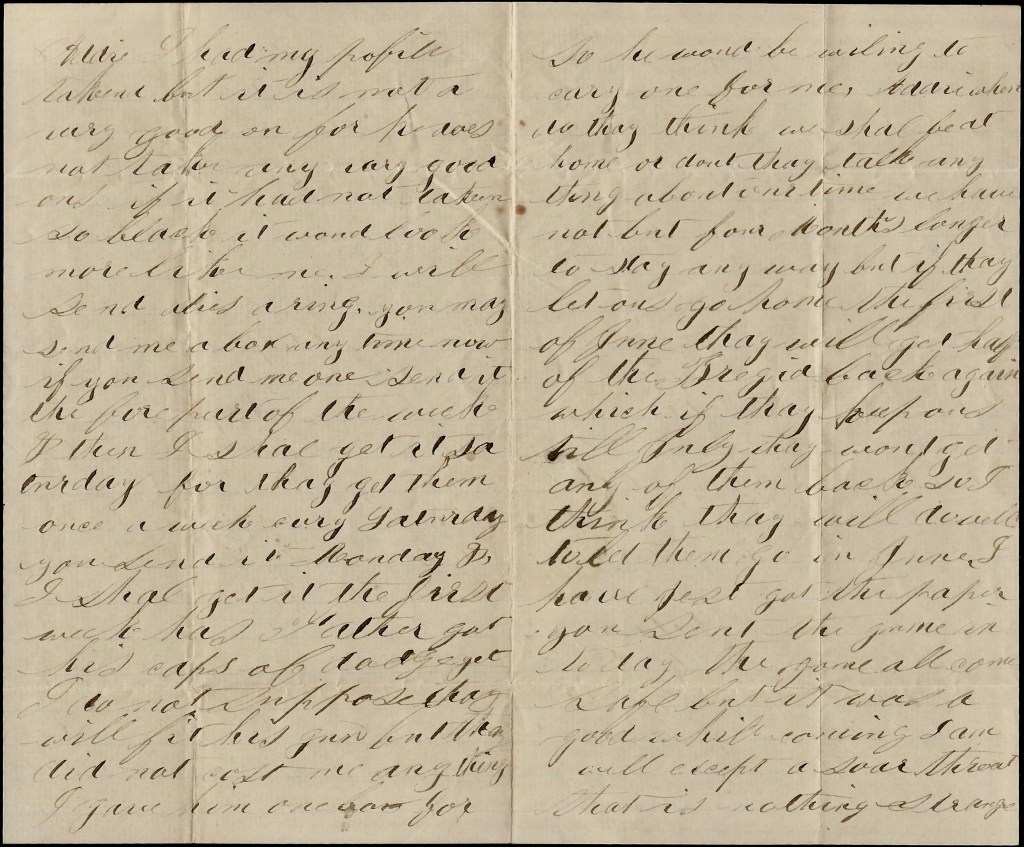 Addie I had my profile
takend but it is not a
vary good on for he does
not take any vary good
ons if it had not taken
so black it woud look
more like me. I will
send alies a ring. you may
send me a box any time now
if you send me one send it
the fore part of the week
& then I shal get it sa
turday for thay get them
once a week evry Saturday
you send it Monday &
I shal get it the first
week has Father got
his caps of dodge yet
I do not suppose thay
will fit his gun but thay
did not cost me any thing
I gave him one box for
so he woud be wiling to
cary one for me, Addie when
do thay think we shal be at
home or dont thay talk any
thing about our time we have
not but four Months longer
to stay any way but if thay
let ons go home the first
of June thay will get half
of the Bregid back again
which if thay keep ons
till July thay wont get
any of them back so I
think thay will do well
to let them go in June I
have jest got the paper
you sent the gume in
to day the gume all come
safe but it was a
good while coming I am
well except a soar throat
that is nothing strange